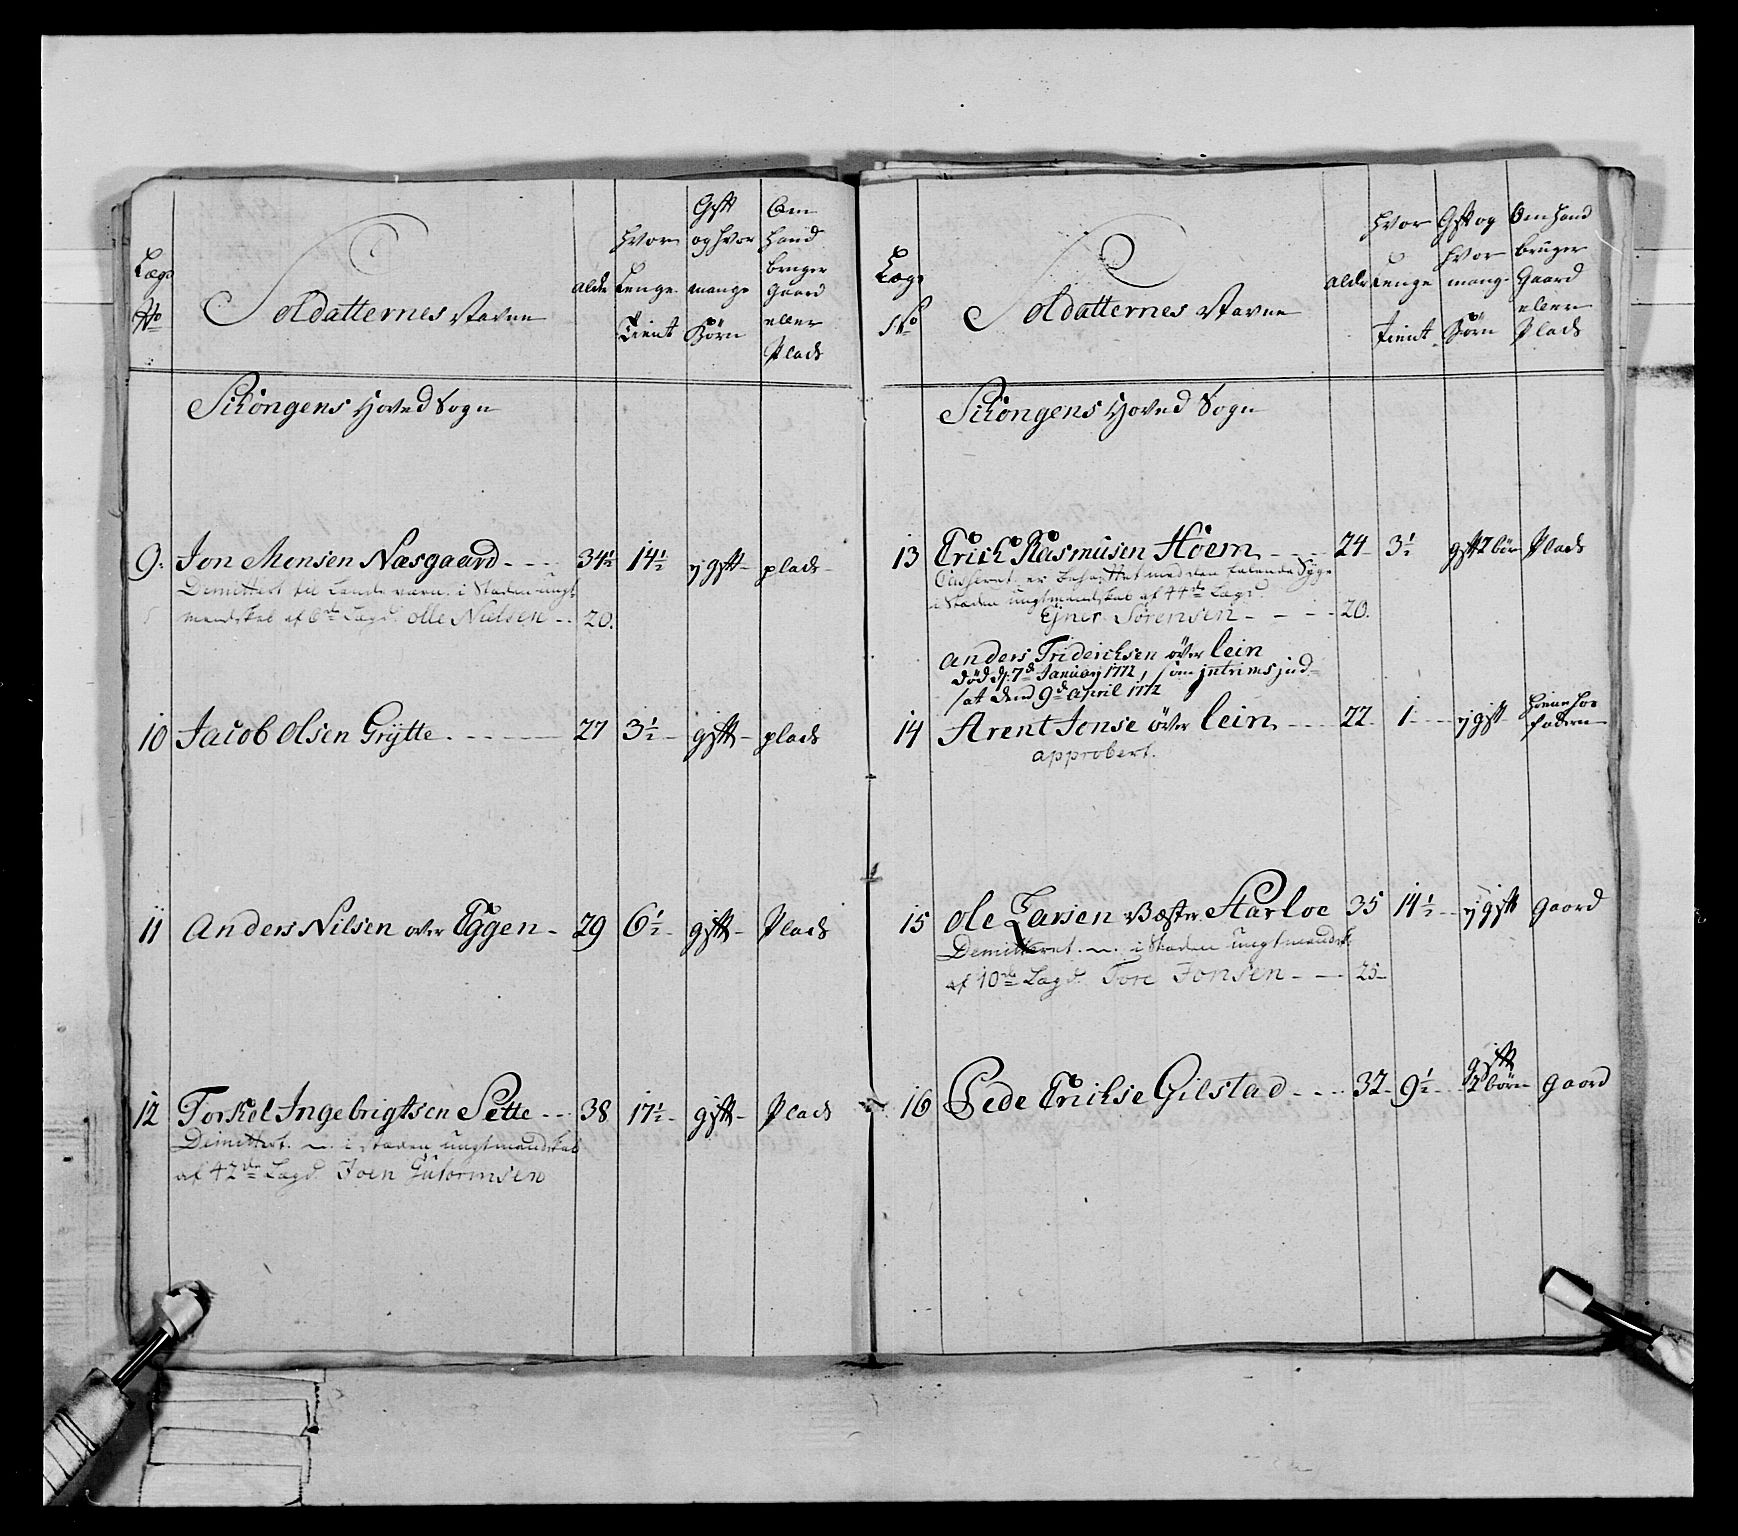 Lægs
No
Soldatternes Nafne
alder
hvor
Lenge
Tient
Gift
og hvor
mange
Börn
Om
hand
bruger
Gaard
eller
Plads
Schöngens Hoved Sogn
9. Jon Monsen Næsgaard - - - 34½ 14½ ygift - plads -
Demittert til Lande værn. i Staden ungt
mandskab af 6de Lægd. olle Nielsen - - 20.
10 Jacob Olsen Grÿtte - - - - 27 3½ - gift - plads
11 Anders Nilsen over Eggen - 29 6½ - gift - Plads
12 Torkel Ingebrigtsen Sette - - 38 17½ - gift - Plads
Demittert. i staden ungtmandskab
af 42de Lægd. Joen Gutormsen
Lægs
No
Soldatternes Nafne
alder
hvor
Lenge
Tient
Gift og
hvor
mange
Börn
Om hand
bruger
Gaard
eller
Plads
Schöngens Hoved Sogn
13 Erich Rasmusen Höem - - - 24 - 3½ gift 2 börn Plads
Casseret er behæftet med den falende Syge
i Staden ungtmandskab af 44de Lægd.
Ejner Sörensen - - - 20.
Anders Friderichsen över lein
död d. 7de Januarj 1772, som jntrims jnd-
sat dend 9de april 1772
14 Arent Jonse över lein - - - 22 - 1 - - - ygift hiemme hos faderen
approbert.
15 Ole Larsen Væster Harloe 35 14½ - ygift gaard
Demitteret. i Staden ungtmandsk.
af 10de Lægd. Tore Jonsen - - - 25 -
16 Pede Erichse Gilstad - - - 32 - 9½ - gift 2 börn gaard